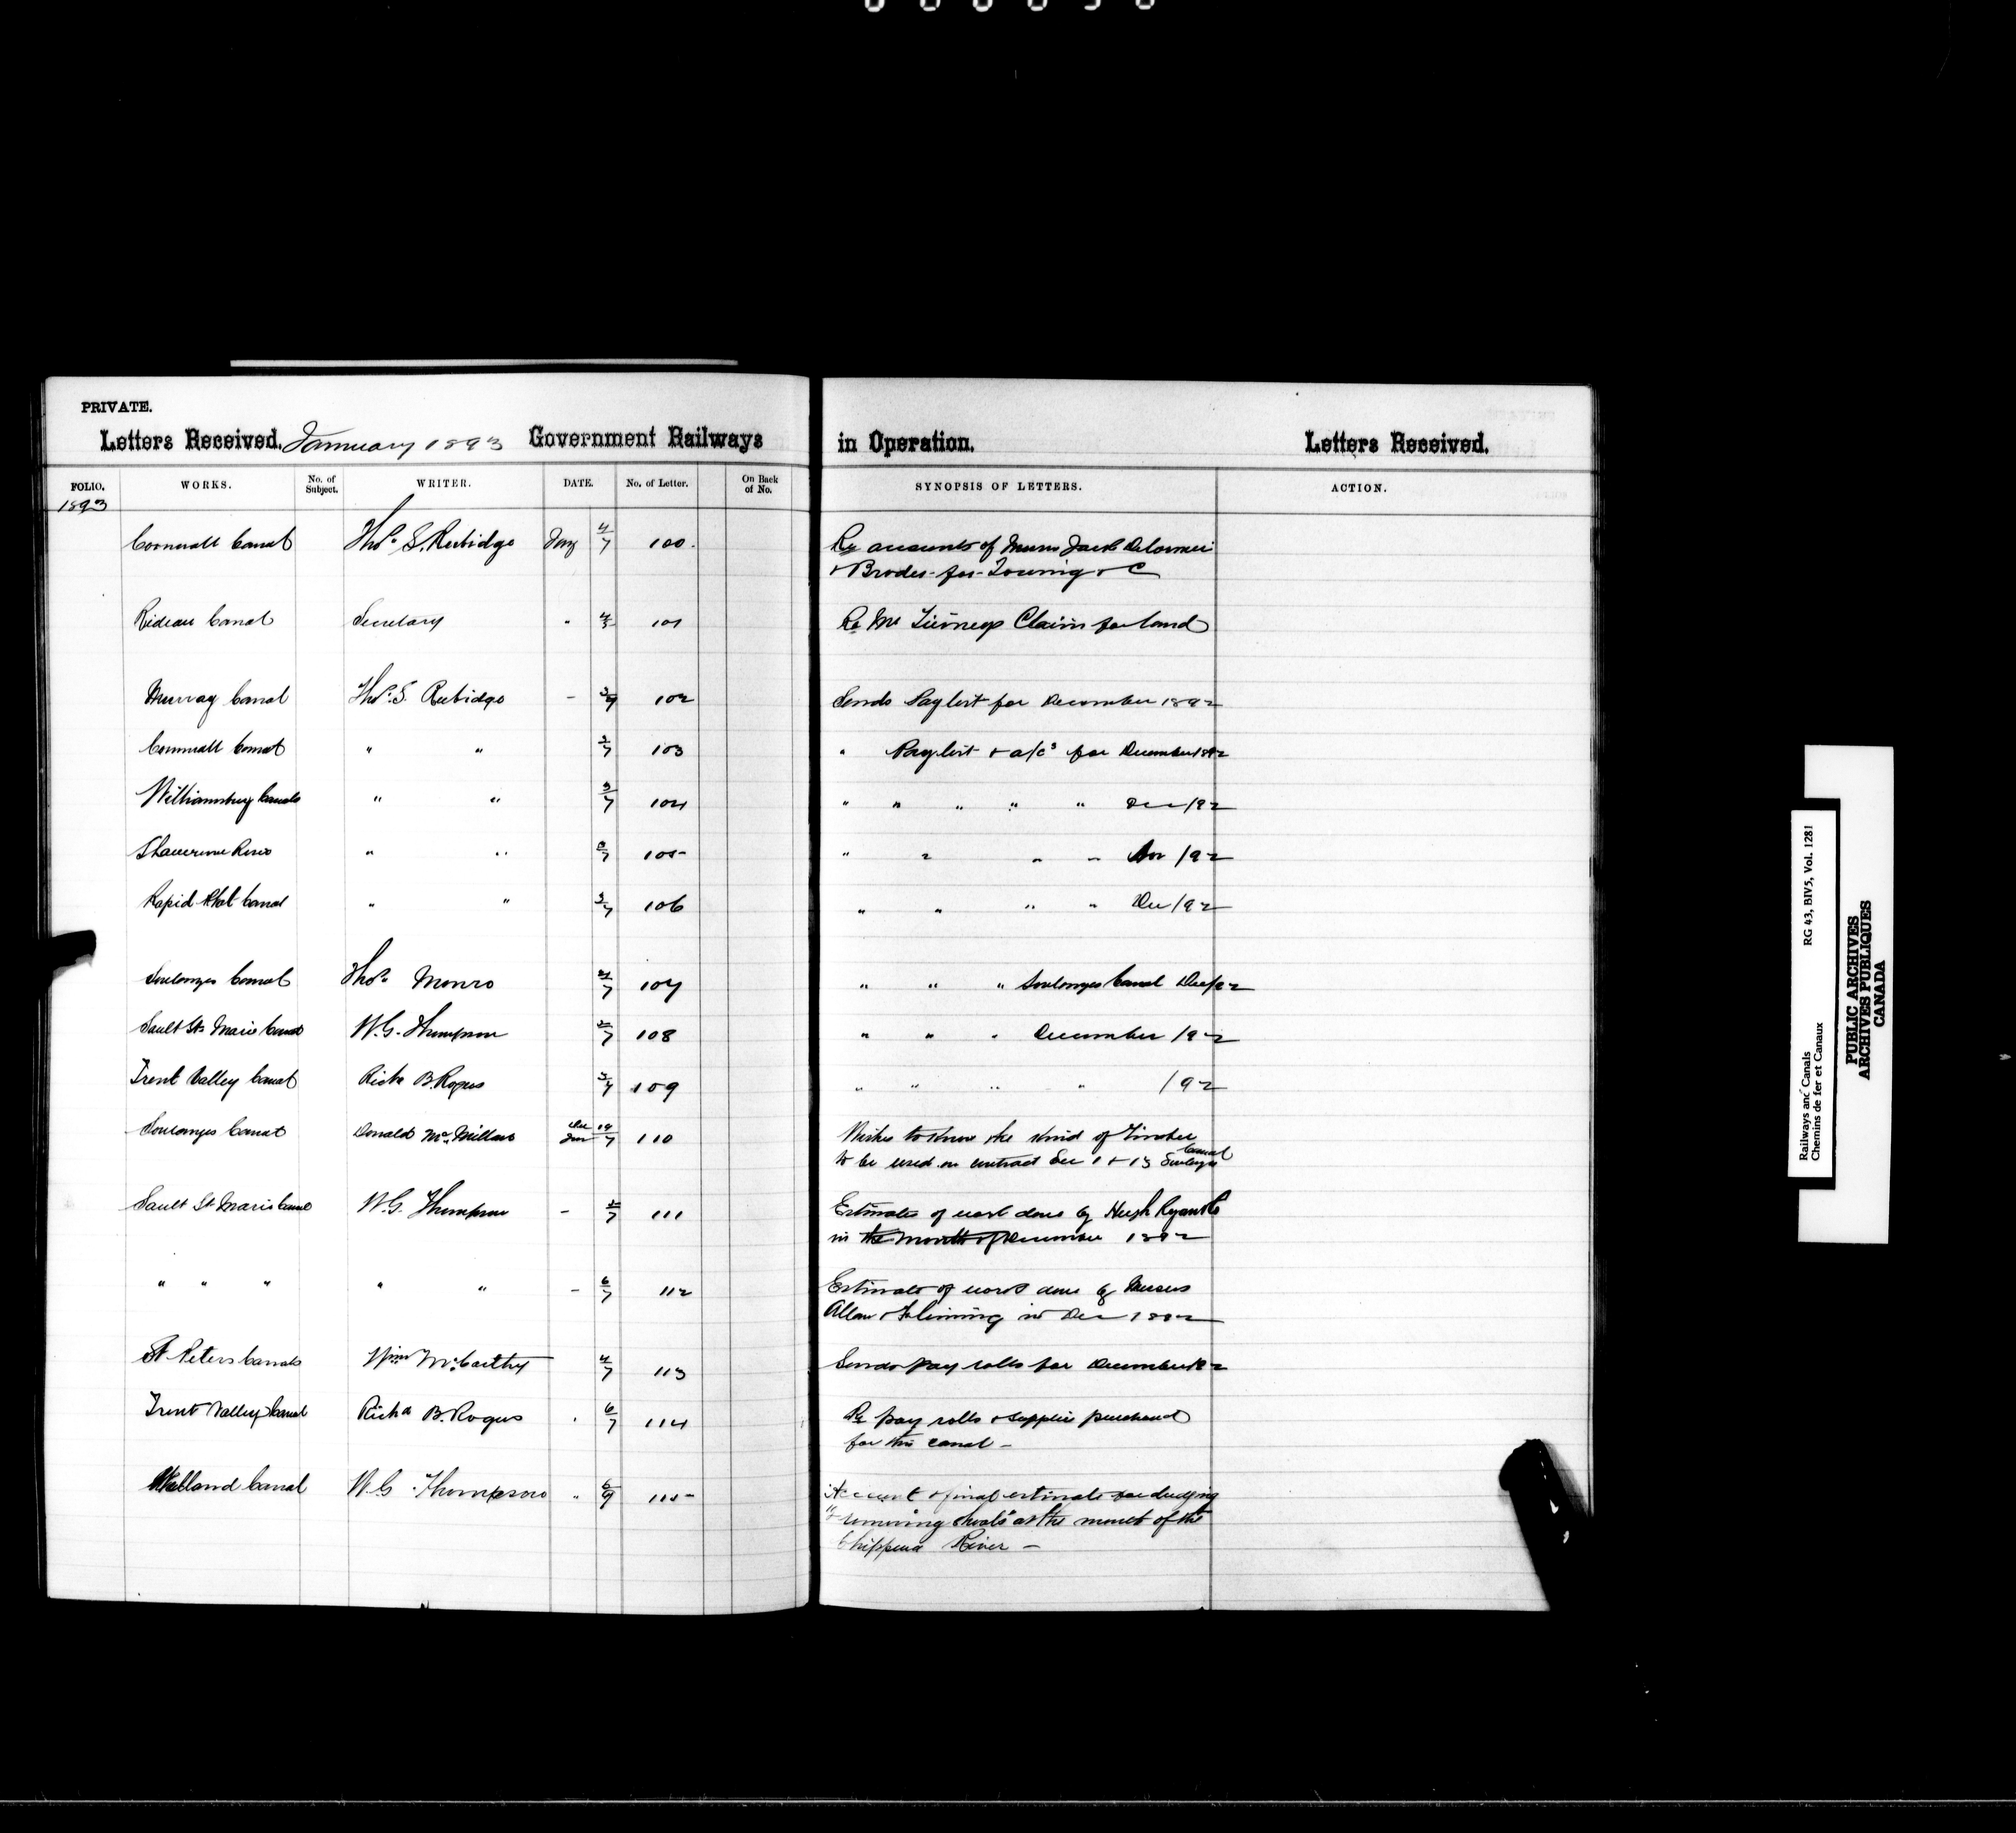 PRIVATE.
Letters Received. January 1893 Government Railways in Operation. Letters Received.
FOLIO. WORKS. No. of Subject. WRITER. DATE. No. of Letter. On Back of No. SYNOPSIS OF LETTERS. ACTION.
1893
Cornwall Canal Thos. S. Rubidge Jany 4/7 100. Re accounts of Jacob Delormier
& Brodes for Towing & C
Rideau Canal Secretary " 4/5 101 Re Mr Claim for land
Murray Canal Thos. S. Rubidge - 3/9 102 Sends Paylist for December 1892
Cornwall Canal " " 3/7 103 " Paylist & a/cs for December 1892
Williamsburg Canals " " 3/7 104 " " " " " Dec /92
St Lawrence River " " 5/7 105 " " " " /92
Rapid Plat Canal " " 3/7 106 " " " " Dec /92
Soulanges Canal Thos. Monro 4/7 107 " " " Soulanges Canal Dec/92
Sault Ste Marie Canal W.G. Thompson 5/7 108 " " " December /92
Trent Valley Canal Richd B. Rogers 3/7 109 " " " " /92
Soulanges Canal Donald McMillan Dec 19 Jan 7 110 Wishes to know the kind of timber
to be used on contract Sec 1 & 13 Soulanges Canal
Sault St Marie Canal W.G. Thompson - 5/7 111 Estimates of work done by Hugh Ryan & Co
in the month of December 1892
" " " " " - 6/7 112 Estimate of work done by Messrs
Allan & Fleming in Dec 1892
St Peters Canals Wm McCarthy 4/7 113 Sends pay rolls for December 92
Trent Valley Canal Richd B. Rogers " 6/7 114 Re pay rolls & supplies purchased
for this canal -
Welland Canal W.G. Thompson " 6/9 115 Account & final estimate for dredging
"& removing shoals" at the mouth of the
Chippewa River -
Railways and Canals RG 43, BIV5, Vol. 1281
Chemins de fer et Canaux
PUBLIC ARCHIVES
ARCHIVES PUBLIQUES
CANADA